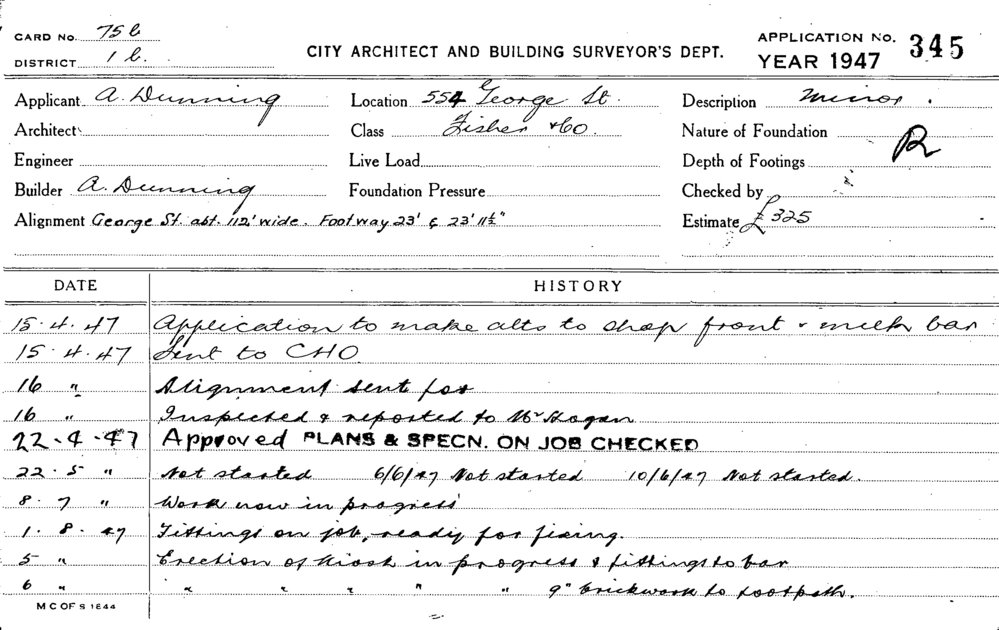 CARD No. 75b
DISTRICT 1b.
CITY ARCHITECT AND BUILDING SURVEYOR'S DEPT.
APPLICATION No. 345
YEAR 1947
Applicant A. Dunning Location 554 George St. Description Minor.
Architect Class Fisher & Co. Nature of Foundation
Engineer Live Load Depth of Footings
Builder A. Dunning Foundation Pressure Checked by
Alignment George St. abt. 112' wide. Footway 23' & 23' 11½" Estimate £325
DATE HISTORY
15.4.47 Application to make alts to shop front & milk bar
15.4.47 Sent to CHO
16 " Alignment sent for
16 " Inspected & reported to Mr Hogan
22-4-47 Approved PLANS & SPECN. ON JOB CHECKED
22.5 " Not started 6/6/47 Not started 10/6/47 Not started.
8.7 " Work now in progress
1.8.47 Fittings on job, ready for fixing.
5 " Erection of Kiosk in progress & fittings to bar
6 " " " " " " 9" brickwork to footpath.
M C OF S 1844